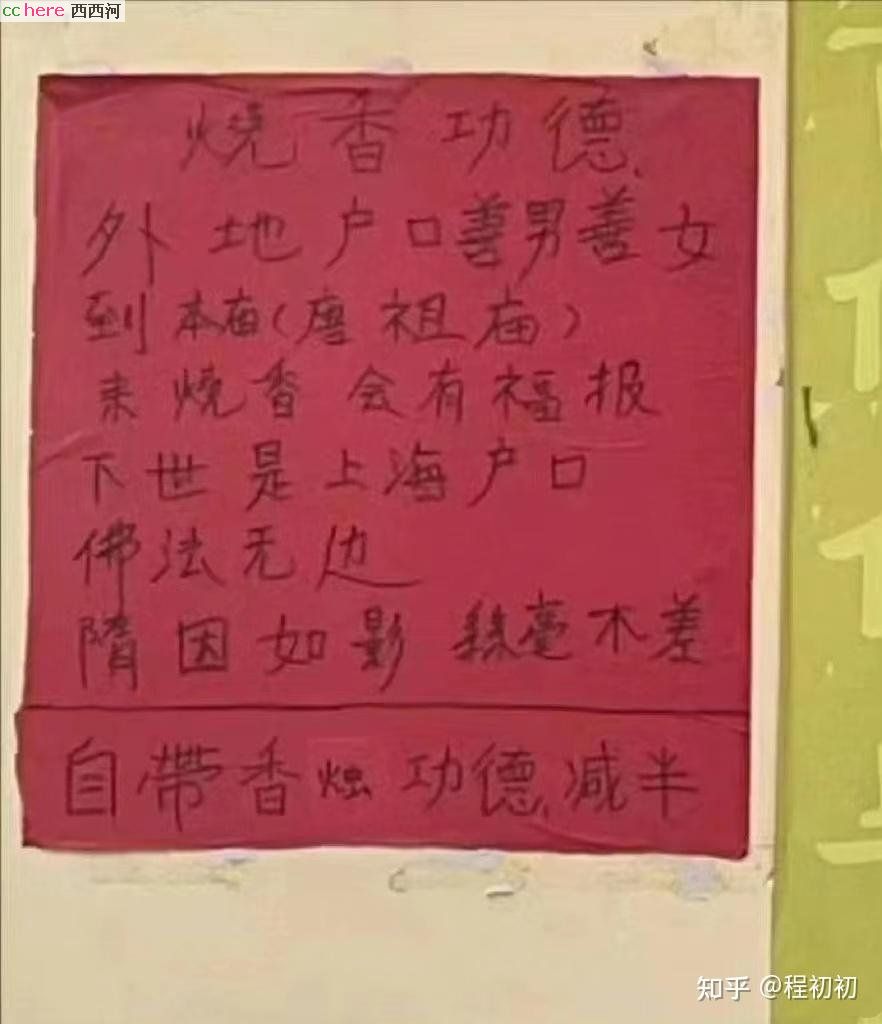 cchere 西西河
烧香功德
外地户口善男善女
到本庙(唐祖庙)
来烧香会有福报
下世是上海户口
佛法无边
隋因如影 丝毫不差
自带香烛功德减半
知乎 @程初初